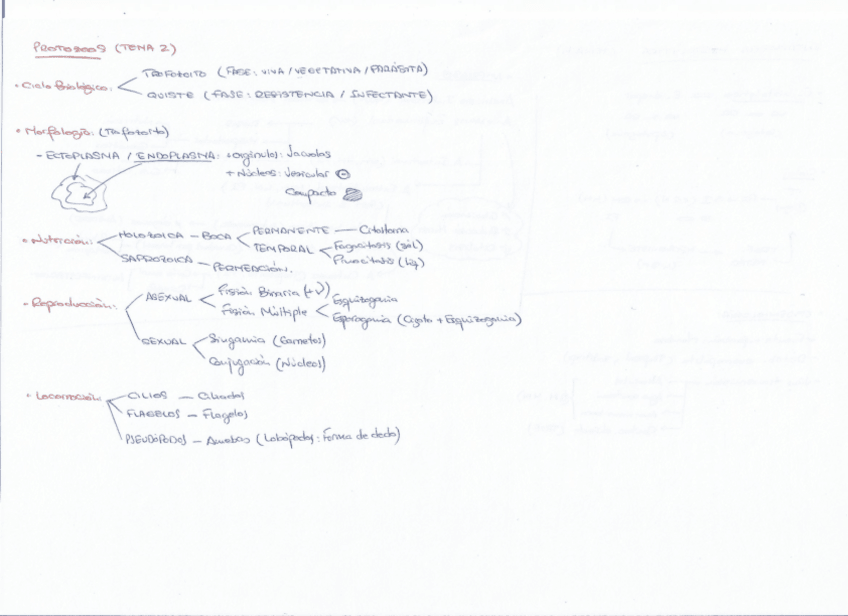 PROTOZOOS (TEMA 2)
• Ciclo Biológico: TROFOZOITO (FASE: VIVA / VEGETATIVA / PARÁSITA)
QUISTE (FASE: RESISTENCIA / INFECTANTE)
• Morfología: (Trofozoito)
- ECTOPLASMA / ENDOPLASMA: + Orgánulos: Vacuolas
+ Núcleos: Vesicular
Compacto
• Nutrición: HOLOZOICA - BOCA PERMANENTE — Citostoma
TEMPORAL Fagocitosis (sól)
Pinocitosis (líq)
SAPROZOICA - PERMEACIÓN.
- Reproducción: ASEXUAL Fisión Binaria (+V)
Fisión Múltiple Esquizogonia
Esporogonia (Cigoto + Esquizogonia)
SEXUAL Singamia (Gametos)
Conjugación (Núcleos)
• Locomoción: CILIOS — Ciliados
FLAGELOS - Flagelos
PSEUDÓPODOS - Amebas (Lobópodos: Forma de dedo)